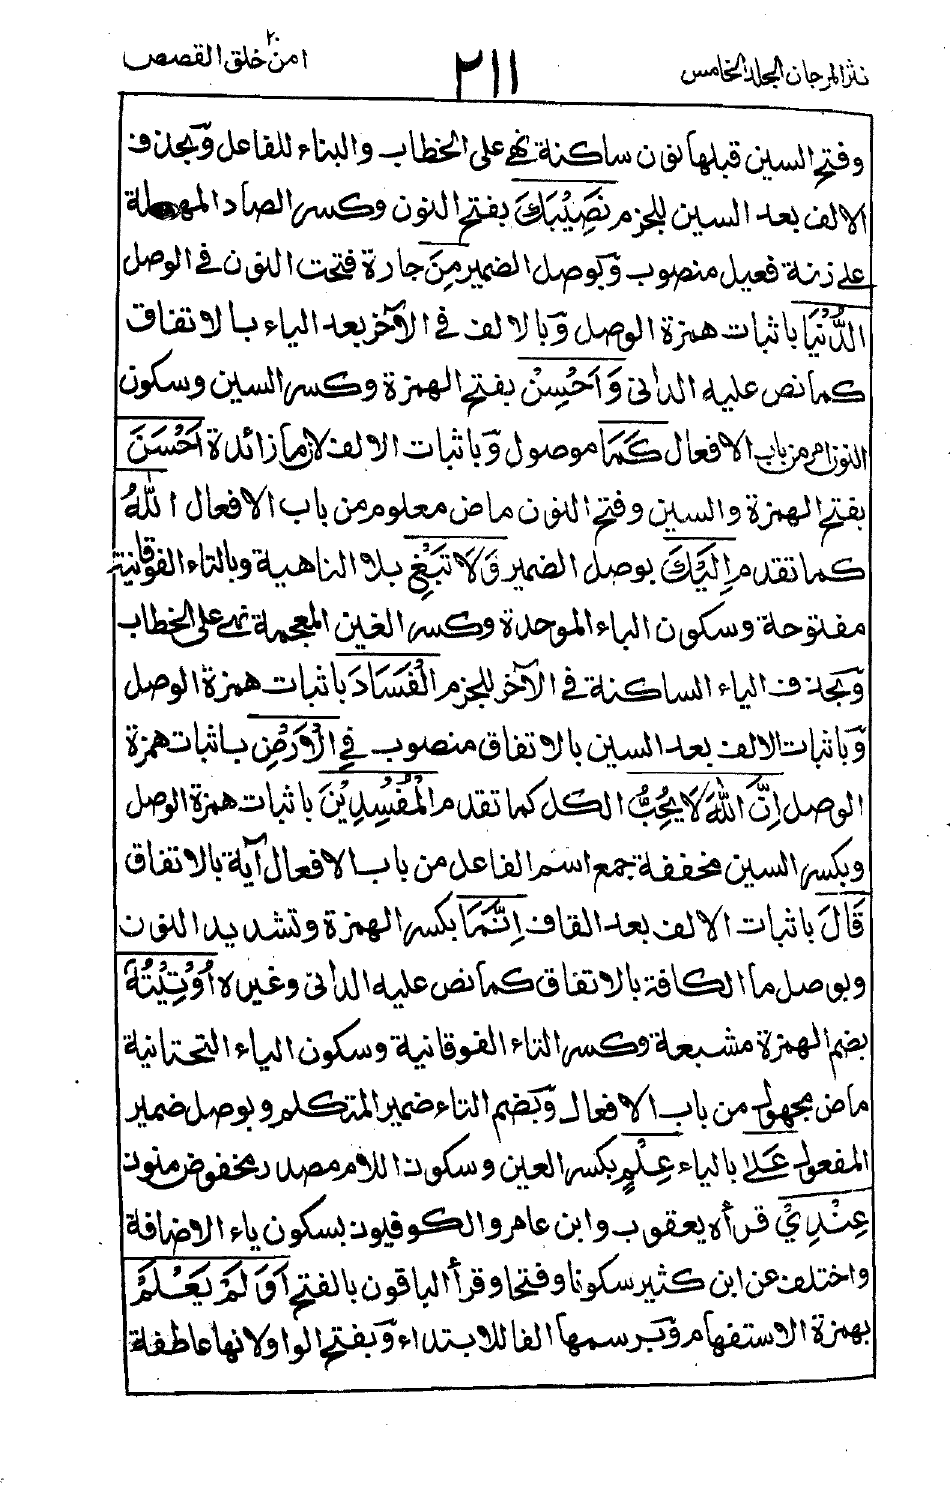 نثر المرجان المجلد الخامس
٢١١
امن خلق القصص ٢٠
وفتح السين قبلها نون ساكنة نهي على الخطاب والبناء للفاعل وَبحذف
الالف بعد السين للجزم نَصِيْبَكَ بفتح النون وكسر الصاد المهملة
على زنة فعيل منصوب وَبوصل الضمير مِنَ جارة فتحت النون في الوصل
الدُّنْيَا باثبات همزة الوصل وَبالالف في الآخر بعد الياء بالاتفاق
كما نص عليه الدانى وَاَحْسِنْ بفتح الهمزة وكسر السين وسكون
النون امر من باب الافعال كَمَا موصول وَباثبات الالف لازما زائدة اَحْسَنَ
بفتح الهمزة والسين وفتح النون ماض معلوم من باب الافعال اللّٰهُ
كما تقدم اِلَيْكَ بوصل الضمير وَلَا تَبْغِ بلا الناهية وبالتاء الفوقانية
مفتوحة وسكون الباء الموحدة وكسر الغين المعجمة نهي على الخطاب
وَبحذف الياء الساكنة في الآخر للجزم الْفَسَادَ باثبات همزة الوصل
وَباثبات الالف بعد السين بالاتفاق منصوب فِي الْاَرْضِ باثبات همزة
الوصل اِنَّ اللّٰهَ لَا يُحِبُّ الكل كما تقدم الْمُفْسِدِيْنَ باثبات همزة الوصل
وبكسر السين مخففة جمع اسم الفاعل من باب الافعال آية بالاتفاق
قَالَ باثبات الالف بعد القاف اِنَّمَا بكسر الهمزة وتشديد النون
وبوصل ما الكافة بالاتفاق كما نص عليه الدانى وغيره اُوْتِيْتُهٗ
بضم الهمزة مشبعة وكسر التاء الفوقانية وسكون الياء التحتانية
ماض مجهول من باب الافعال وَبضم التاء ضمير المتكلم وبوصل ضمير
المفعول عَلٰى بالياء عِلْمٍ بكسر العين وسكون اللام مصدر مخفوض منون
عِنْدِيْ قرأه يعقوب وابن عامر والكوفيون بسكون ياء الاضافة
واختلف عن ابن كثير سكونا وفتحا وقرأ الباقون بالفتح اَوَلَمْ يَعْلَمْ
بهمزة الاستفهام وَبرسمها الفا للابتداء وَبفتح الواو لانها عاطفة